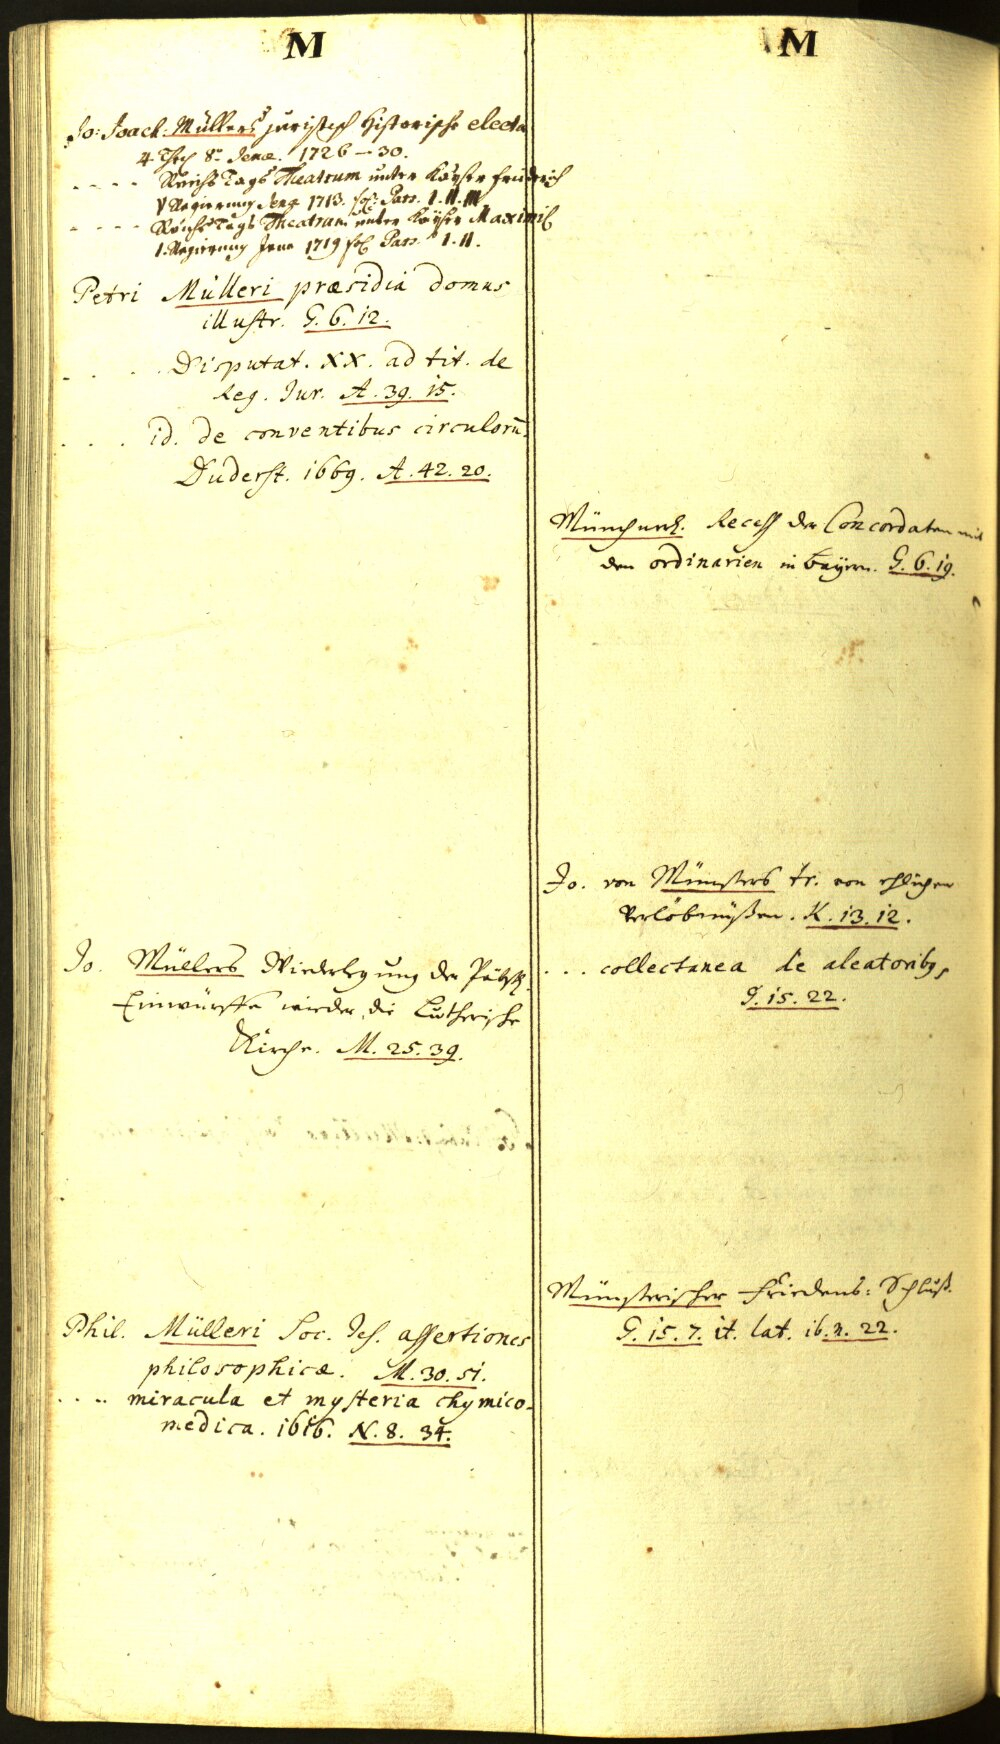 M
Jo: Joach: Müllers juristisch Historische electa
4. Theh 8.° Jenæ. 1726-30.
- - - - Reichs Tags Theatrum unter Kayser Friedrich
V Regierung Jena 1713. fol: Pars. I. II. III
- - - - Reichs Tags Theatrum unter Kayser Maximil
I. Regierung Jena 1719 fol Pars I. II.
Petri Mülleri præsidia domus
illustr. G. 6. 12.
. . . . Disputat. XX. ad tit. de
Reg. Jur. A. 39. 15.
. . . id. de conventibus circulorū.
Duderst. 1669. A. 42. 20.
Jo. Müllers Wiederlegung der Päbstl.
Einwürffe wieder die Lutherische
Kirche. M. 25. 39.
Phil. Mülleri Soc. Jes. assertiones
philosophicæ. M. 30. 51.
. . . . miracula et mysteria chymico-
medica. 1616. N. 8. 34.
M
Münchnerl. Recess der Concordaten mit
den ordinarien in Bayrn. G. 6. 19.
Jo. von Münsters tr. von ehlichen
Verlöbnüßen. K. 13. 12.
. . . collectanea de aleatoribq,
G. 15. 22.
Münsterischer Friedens-Schluß.
G. 15. 7. it. lat. ib. n. 22.